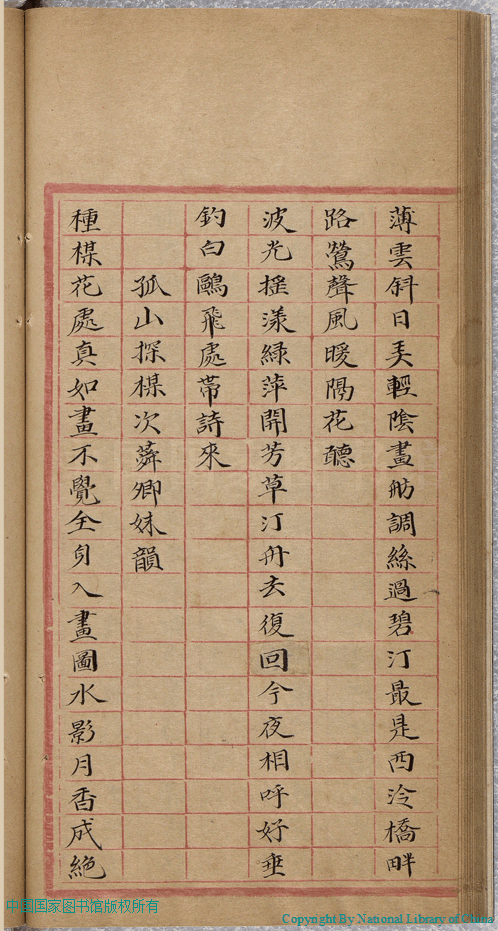 薄雲斜日弄輕陰畫舫調絲過碧汀最是西泠橋畔
路鶯聲風暖隔花聽
波光搖漾綠萍開芳草汀舟去復回今夜相呼好垂
釣白鷗飛處帶詩來
孤山探楳次蕣卿妹韻
種楳花處真如畫不覺全身入畫圖水影月香成絕
中国国家图书馆版权所有
Copyright By National Library of China